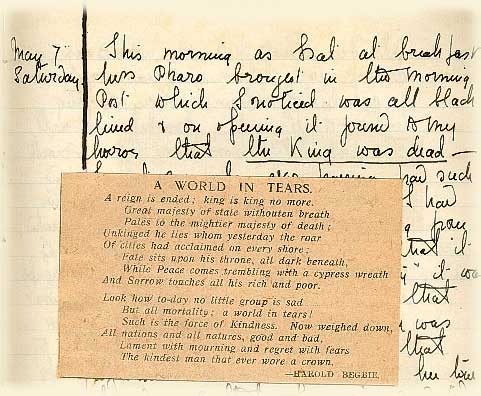 May 7th
Saturday
This morning as I sat at breakfast
Miss Pharo brought in the Morning
Post which I noticed was all black
lined & on opening it found to my
horror that the King was dead —
had such
I had
that it
it was
that
was
that
her
A WORLD IN TEARS.
A reign is ended; king is king no more.
Great majesty of state withouten breath
Pales to the mightier majesty of death;
Unkinged he lies whom yesterday the roar
Of cities had acclaimed on every shore;
Fate sits upon his throne, all dark beneath,
While Peace comes trembling with a cypress wreath
And Sorrow touches all his rich and poor.
Look how to-day no little group is sad
But all mortality; a world in tears!
Such is the force of Kindness. Now weighed down,
All nations and all natures, good and bad,
Lament with mourning and regret with fears
The kindest man that ever wore a crown.
—HAROLD BEGBIE.